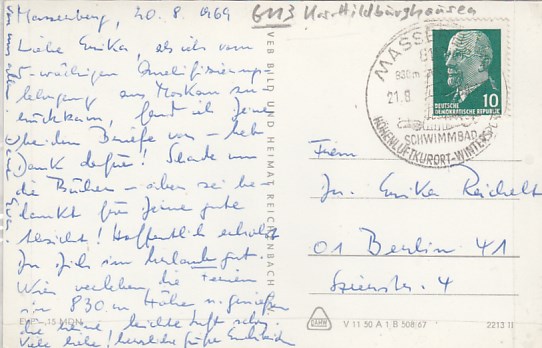 Masserberg, 20.8.1969
6113 Krs. Hildburghausen
Liebe Erika, als ich vom
5-wöchigen Qualifizierungs-
lehrgang aus Moskau zu-
rückkam, fand ich Deine
beiden Briefe vor – hab
Dank dafür! Schade um
die Bücher – aber sei be-
dankt für Deine gute
Absicht! Hoffentlich erholst
Du Dich im Urlaub gut.
Wir verleben die Ferien
in 830 m Höhe u. genießen
die reine, leichte Luft sehr.
Viele liebe herzliche Grüße
von uns allen
Eva.
EVP -,15 MDN
VEB BILD UND HEIMAT REICHENBACH
MASSE
830 m
21.8.
SCHWIMMBAD
HÖHENLUFTKURORT-WINTERSP
DEUTSCHE
DEMOKRATISCHE REPUBLIK
10
Erika Reichelt
01 Berlin 41
4
V 11 50 A 1 B 508/67
2213 II